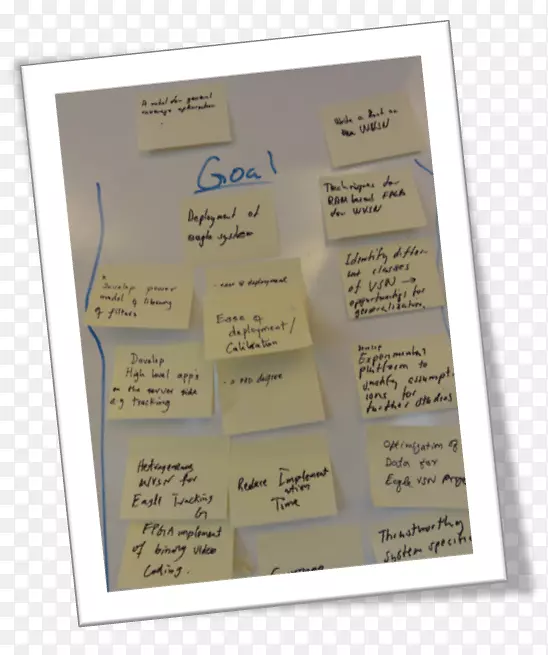 A model for general
coverage optimization
Write a Book on
the WVSN
Goal
Deployment of
eagle system
Techniques for
RAM based FPGA
for WVSN
Develop power
model of library
of filters
ease of deployment
Ease of
deployment/
Calibration
Identify differ
ent classes
of VSN →
opportunities for
generalization.
Develop
High level app's
on the server side
e.g tracking
- a PhD degree
Experimental
platform to
verify assumpt
ions for
further studies
Hetrogeneous
WVSN for
Eagle Tracking
Reduce Implement
ation
Time
Optimization of
Data for
Eagle VSN
FPGA implement
of binary video
Coding.
Coverage
Thrustworthy
system specific